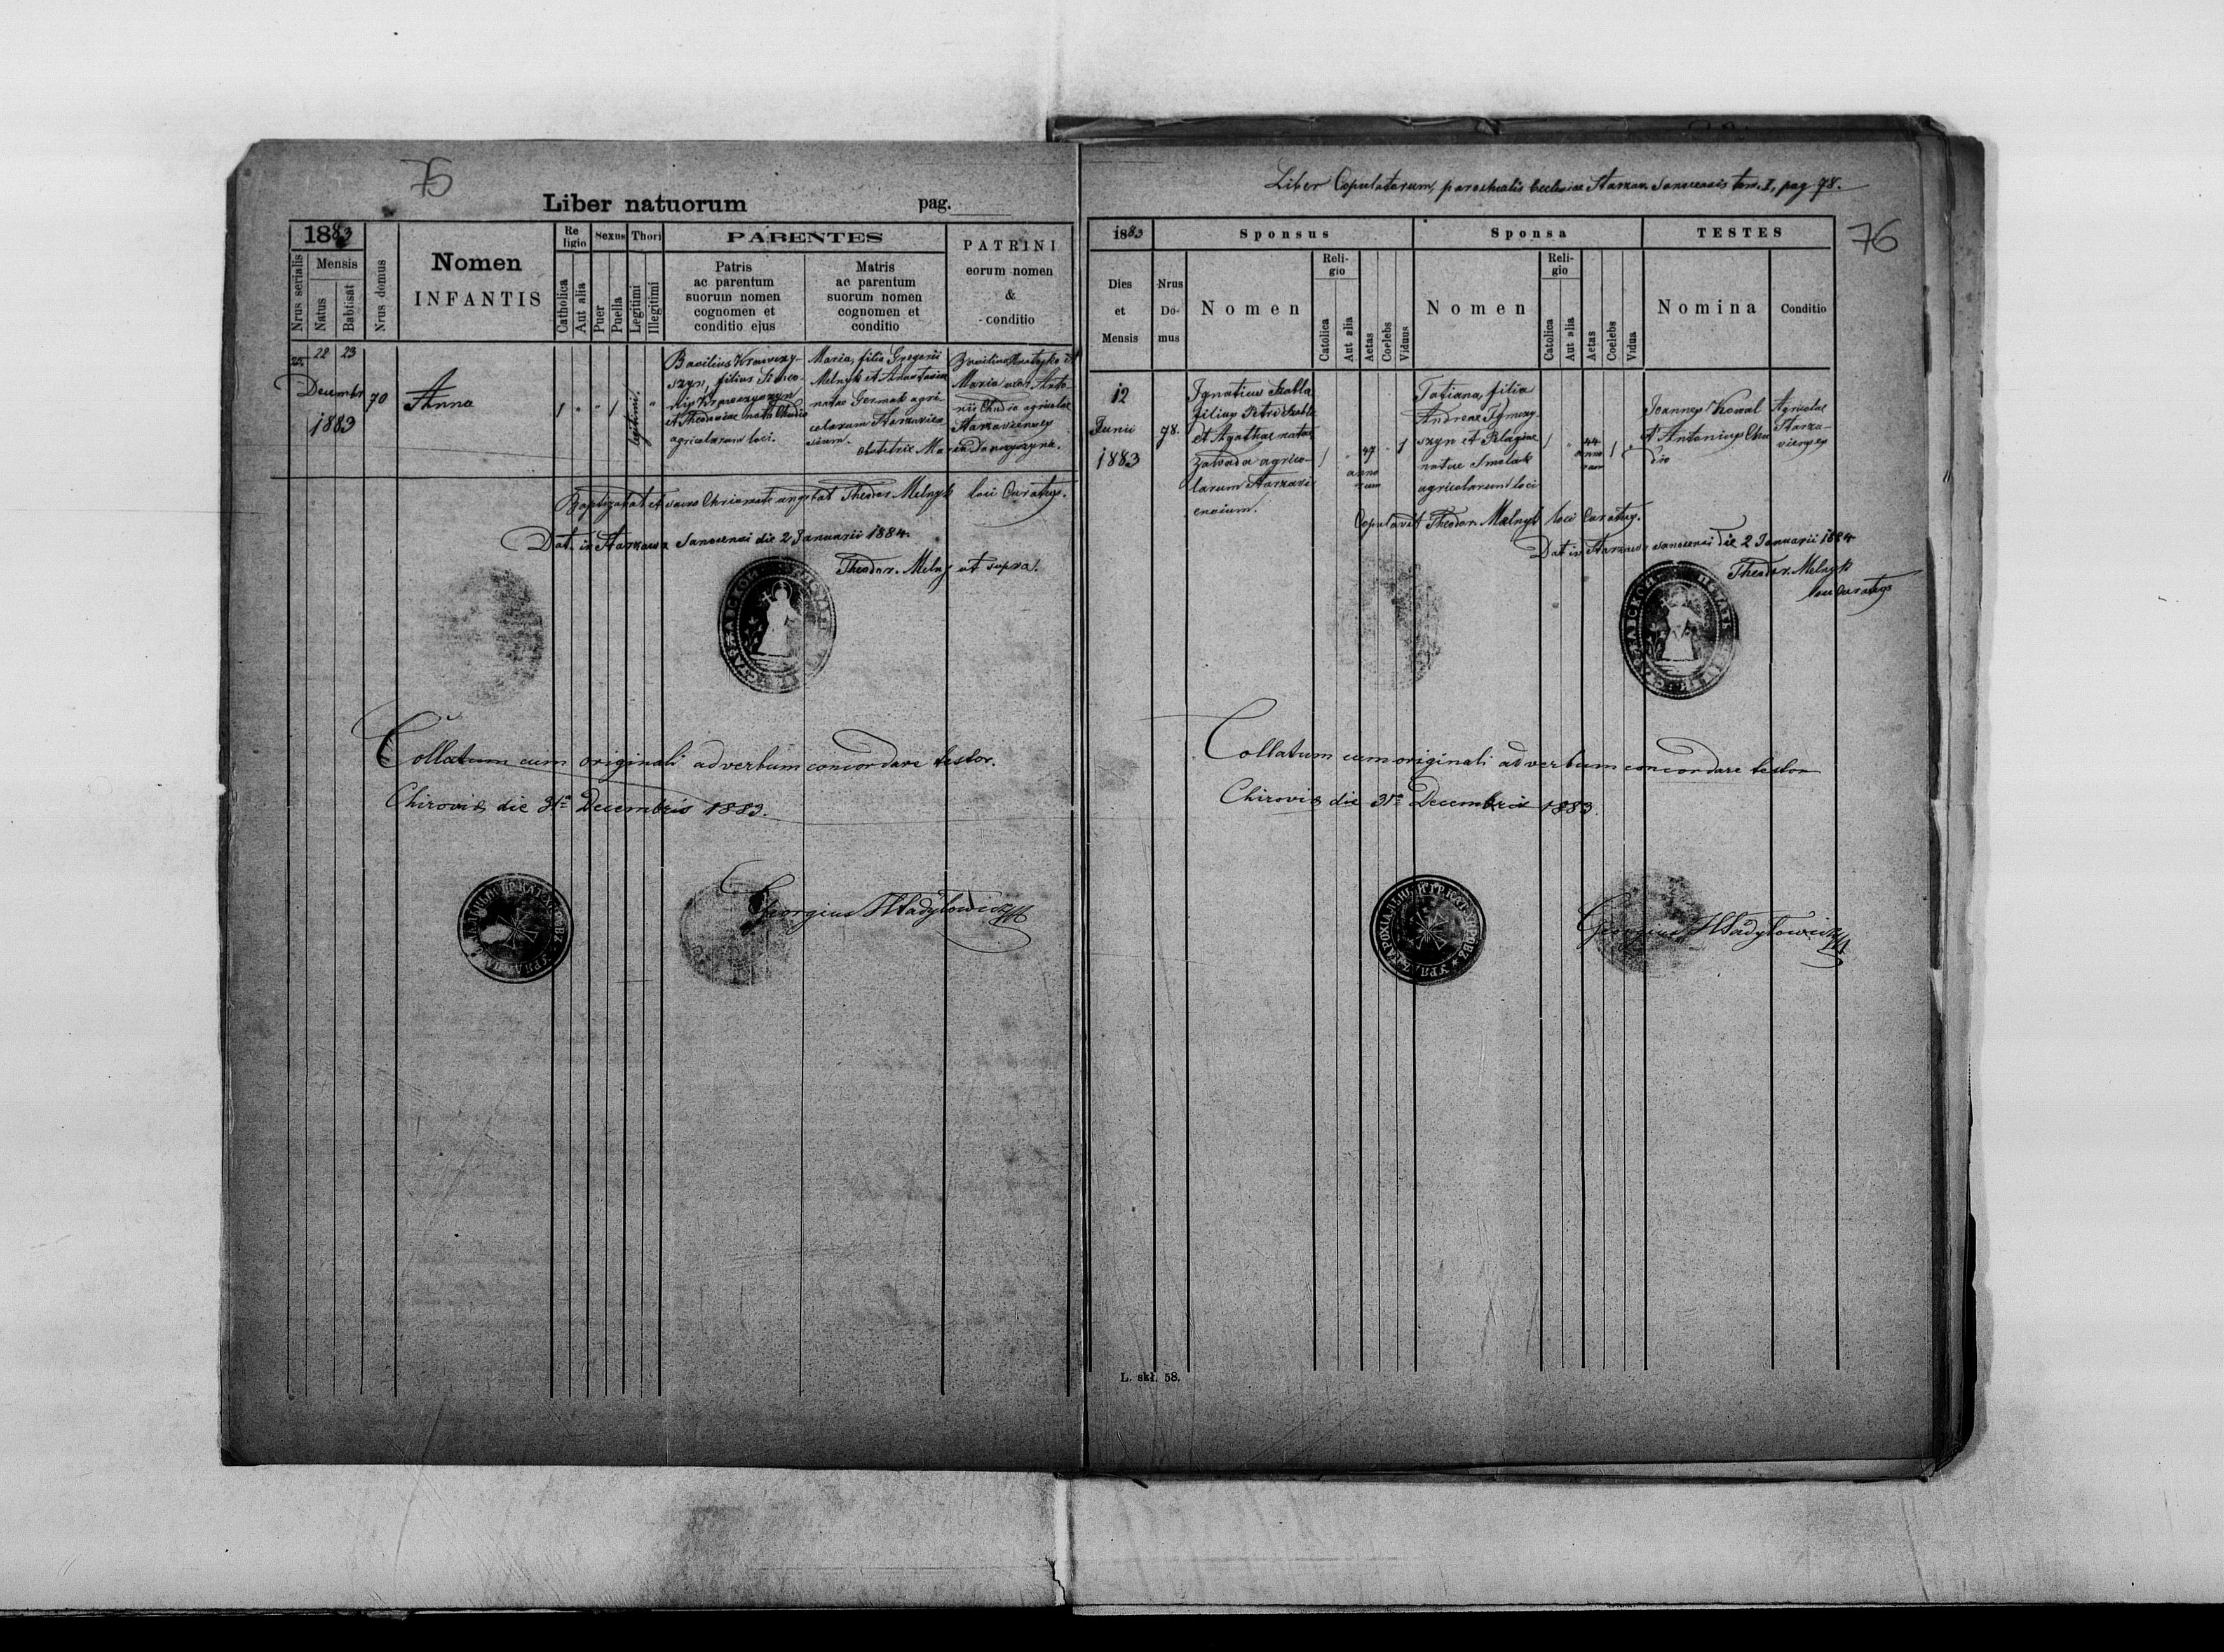 75
Liber natuorum pag.
1883
Nrus serialis
Mensis
Natus
Babtisat
Nrus domus
Nomen
INFANTIS
Religio
Catholica
Aut alia
Sexus
Puer
Puella
Thori
Legitimi
Illegitimi
PARENTES
Patris
ac parentum
suorum nomen
cognomen et
conditio ejus
Matris
ac parentum
suorum nomen
cognomen et
conditio
PATRINI
eorum nomen
&
conditio
22 23
Decembr
1883
70
Anna
1 " " 1 legitimi "
Basilius
szyn, filius Simeo-
nis
et Theodosiae nata Chudio
agricolarum loci.
Maria, filia Gregorii
Melnyk et Anastasiae
natae Germak agri-
colarum Starzavien
sium.
Basilius
Maria uxor Anto-
nii Chudio agricolae
Starzavienses
Obstetrix Maria
Baptizabat et sacro Chrismate ungebat Theodor. Melnyk loci Curatus.
Dat. in Starzawa Sanocensi die 2 Januarii 1884.
Theodor. Melnyk ut supra.
Collatum cum originali ad verbum concordare testor.
Chirovis die 31ª Decembris 1883.
Georgius Hładyłowicz
Liber Copulatorum, parochialis Ecclesiae Starzav. Sanocensis tom. I, pag 78.
76
1883
Sponsus
Sponsa
TESTES
Dies
et
Mensis
Nrus
Do-
mus
Nomen
Reli-
gio
Catolica
Aut alia
Aetas
Coelebs
Viduus
Nomen
Reli-
gio
Catolica
Aut alia
Aetas
Coelebs
Vidua
Nomina
Conditio
12
Junii
1883
78.
Ignatius Skabla
filius Petri Skabla
et Agathae natae
Zawada agrico-
larum Starzavi
ensium.
1 " 47
anno
rum
" 1
Tatiana, filia
Andreae
szyn et Pelagiae
natae Smolak
agricolarum loci
1 " 44
anno
rum
1 "
Joannes Kowal
et Antonius Chu
dio
Agricolae
Starza-
vienses
Copulavit Theodor. Melnyk loci Curatus.
Dat in Starzawa sanocensi die 2 Januarii 1884
Theodor. Melnyk
loci Curatus
Collatum cum originali ad verbum concordare testor
Chirovis die 31ª Decembris 1883.
Georgius Hładyłowicz
L. skł. 58.